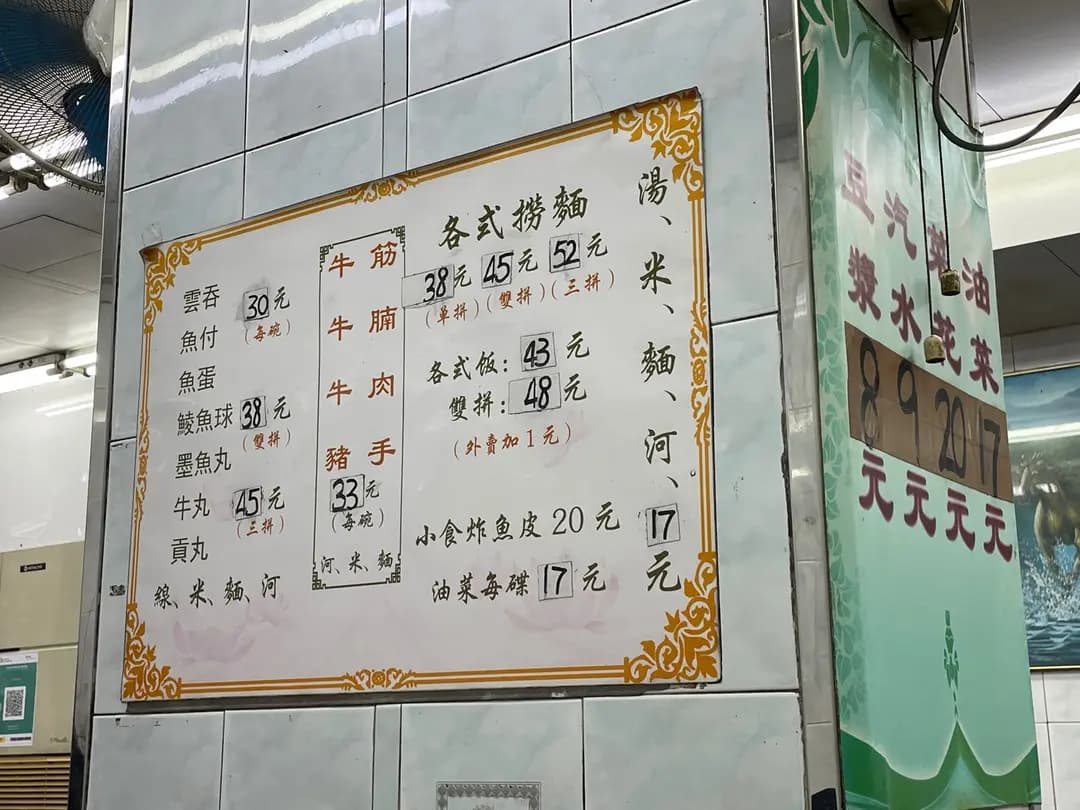 雲吞 30元
(每碗)
魚付
魚蛋
鯪魚球 38元
(雙拼)
墨魚丸
牛丸 45元
(三拼)
貢丸
線、米、麵、河
牛筋
牛腩
牛肉
豬手
33元
(每碗)
河、米、麵
各式撈麵
38元 45元 52元
(单拼)(雙拼)(三拼)
各式饭：43元
雙拼：48元
(外賣加1元)
小食炸魚皮20元
油菜每碟17元
湯、米、麵、河、17元
豆漿8元
汽水9元
菜花20元
油菜17元
HITACHI